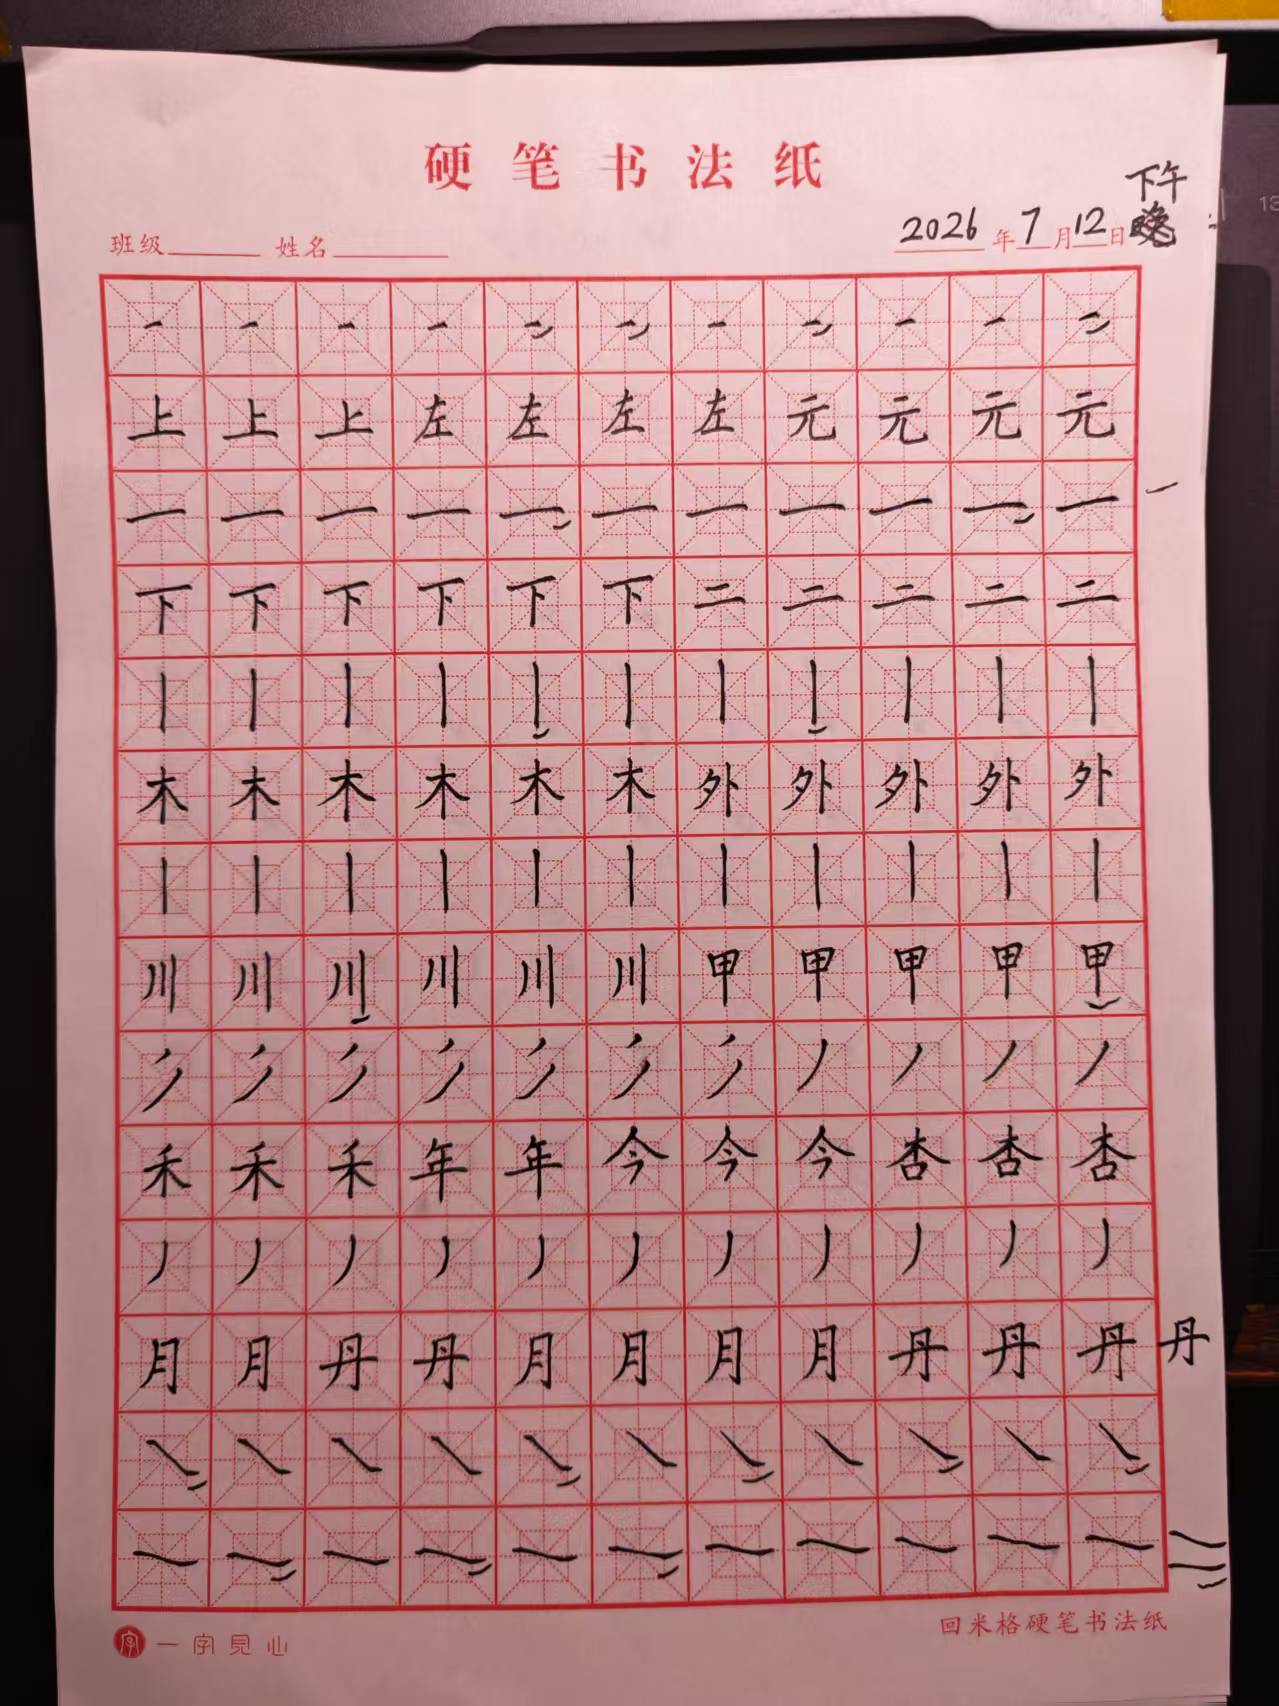 硬笔书法纸
下午
班级 姓名 2026年7月12日晚
一一一一一一一一一一一
上上上左左左左元元元元
一一一一一一一一一一一
下下下下下下二二二二二
丨丨丨丨丨丨丨丨丨丨丨
木木木木木木外外外外外
丨丨丨丨丨丨丨丨丨丨丨
川川川川川川甲甲甲甲甲
丿丿丿丿丿丿丿丿丿丿丿丿丿丿丿丿丿丿
禾禾禾年年今今今杏杏杏
丿丿丿丿丿丿丿丿丿丿丿
月月丹丹月月月月丹丹丹丹
㇏㇏㇏㇏㇏㇏㇏㇏㇏㇏㇏
㇏㇏㇏㇏㇏㇏㇏㇏㇏㇏㇏
回米格硬笔书法纸
字 一字見心